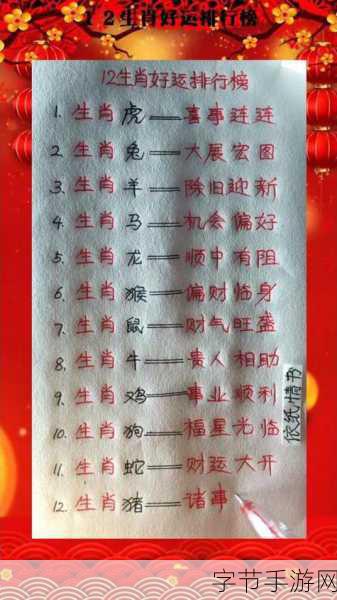 12生肖好运排行榜
12生肖好运排行榜
1. 生肖虎——喜事连连
2. 生肖兔——大展宏图
3. 生肖羊——除旧迎新
4. 生肖马——机会偏好
5. 生肖龙——顺中有阻
6. 生肖猴——偏财临身
7. 生肖鼠——财气旺盛
8. 生肖牛——贵人相助
9. 生肖鸡——事业顺利
10. 生肖狗——福星光临
11. 生肖蛇——财运大开
12. 生肖猪——诸事
依纸情书
字节手游网